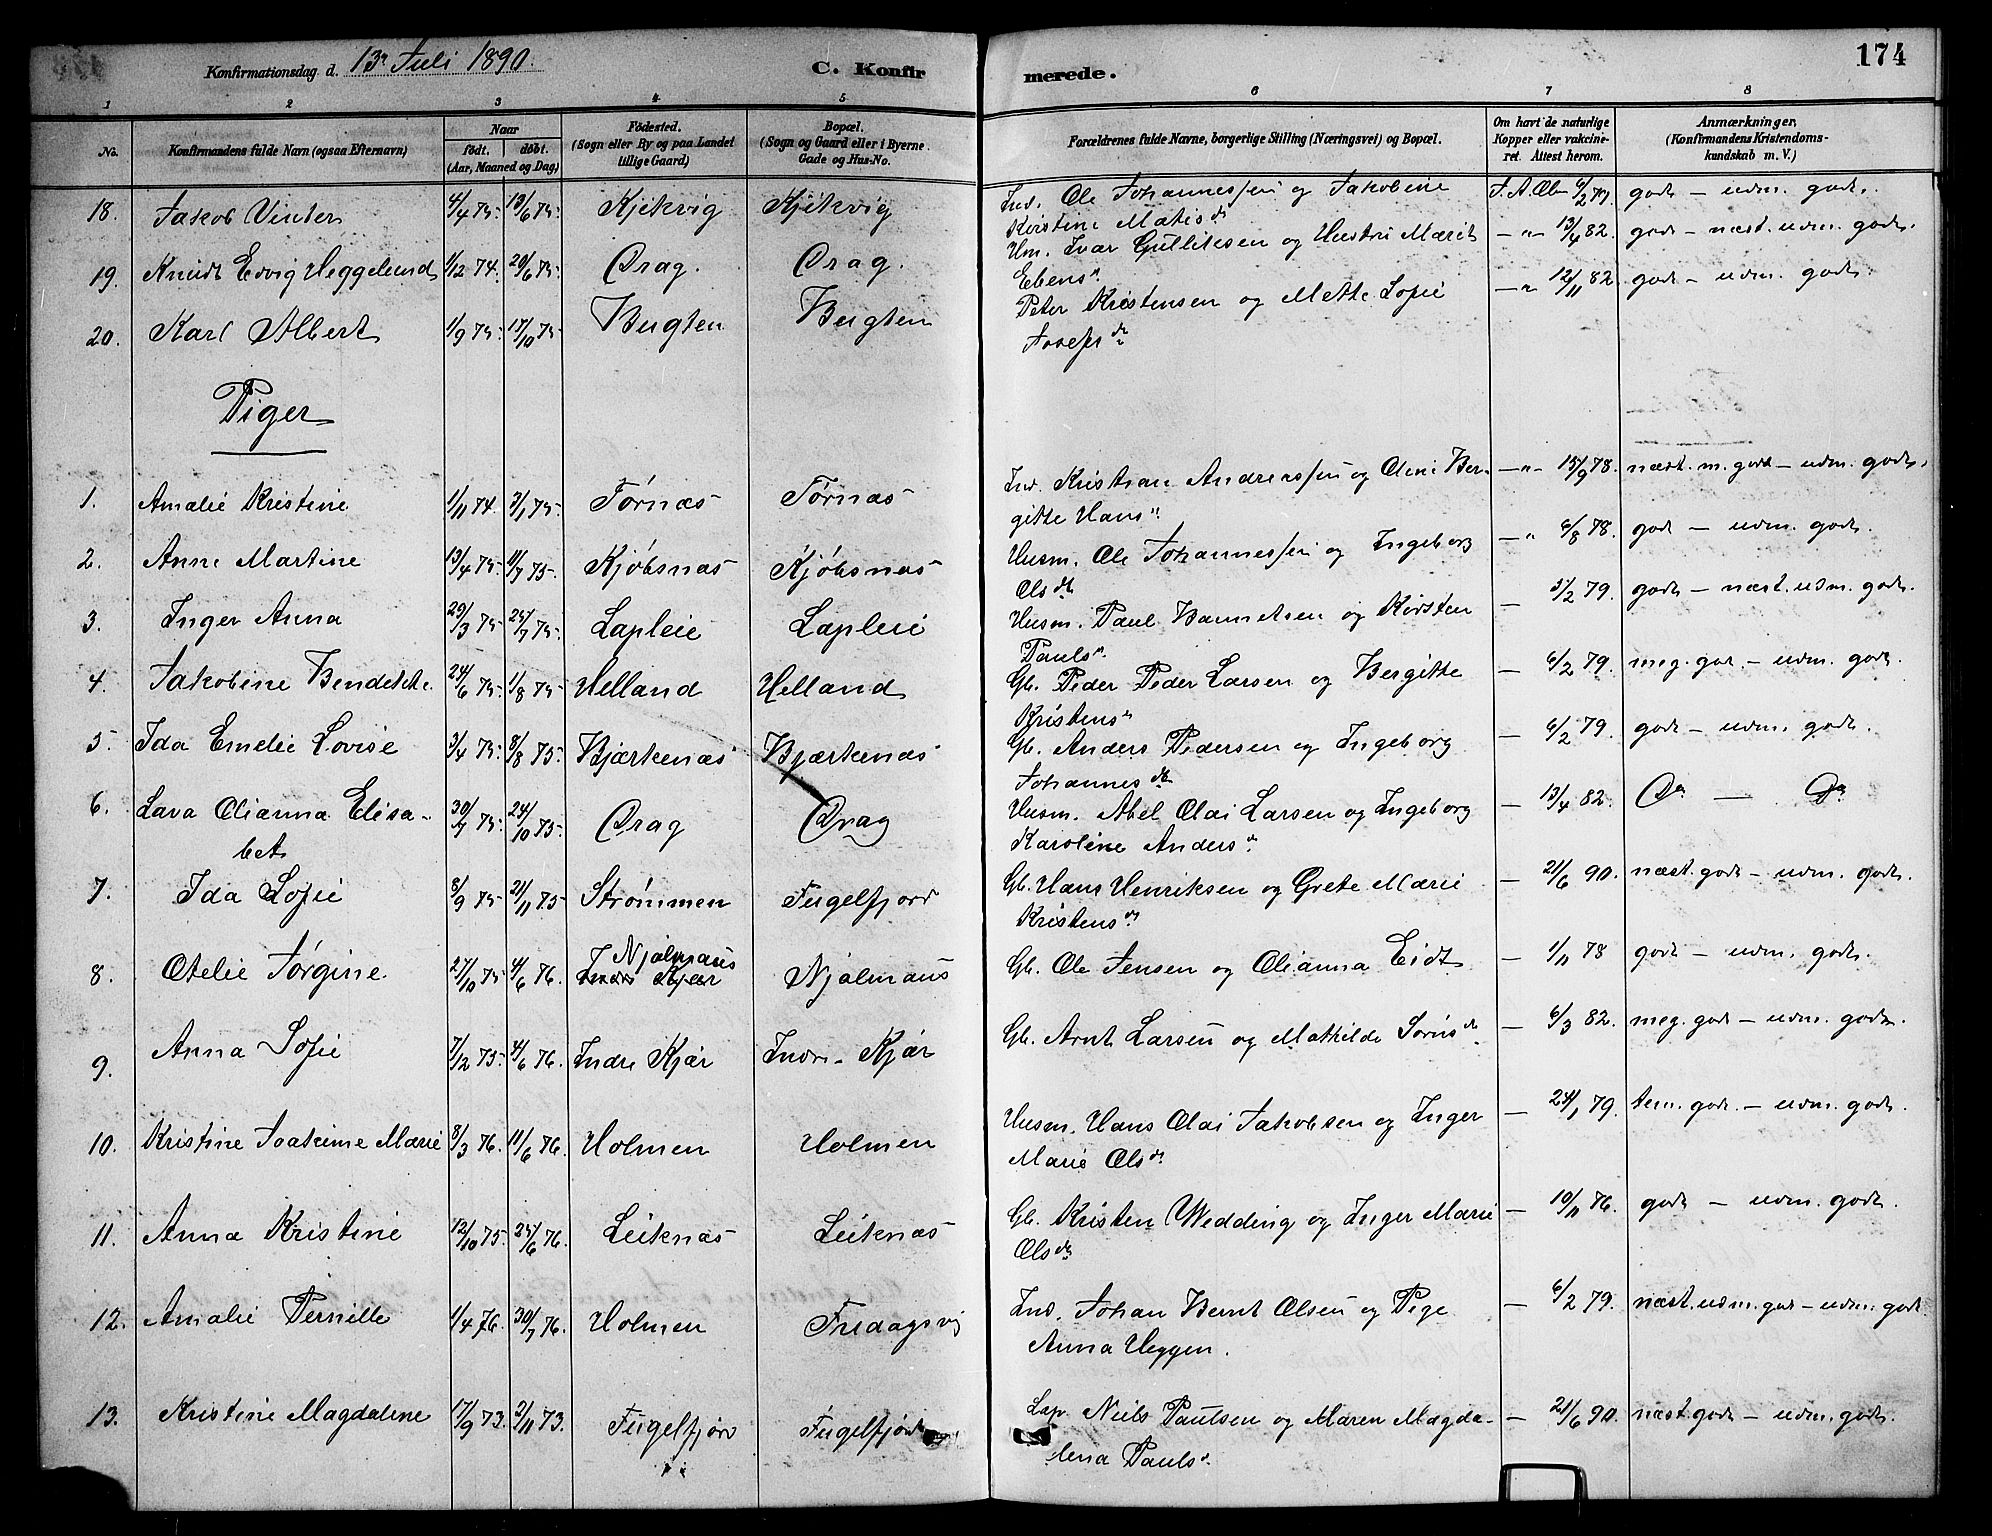 Konfirmationsdag d. 13de Juli 1890. C. Konfirmerede. 174
1 2 3 4 5 6 7 8
No. Konfirmandens fulde Navn (ogsaa Efternavn) Naar födt. döbt. (Aar, Maaned og Dag) Födested. (Sogn eller By og paa Landet tillige Gaard) Bopæl. (Sogn og Gaard eller i Byerne Gade og Hus-No. Forældrenes fulde Navne, borgerlige Stilling (Næringsvei) og Bopæl. Om havt de naturlige Kopper eller vakcineret. Attest herom. Anmærkninger. (Konfirmandens Kristendomskundskab m. V.)
18. Jakob Vinter 4/4 75. 13/6 75. Kjikvig Kjikvig Ind. Ole Johannessen og Jakobine
Kristine Matisdr J. A. Olsen 6/2 79. godt – udm. godt.
19. Knudt Edvig Heggelund 1/12 74. 20/6 75. Drag. Drag. Hm. Ivar Gullitesen og Hustru Marit
Ebensdr –"– 13/4 82. godt – næst. udm. godt.
20. Karl Albert 1/9 75. 17/10 75. Bugten Bugten Peter Kristensen og Mette Sofie
Josefsdr –"– 12/11 82. godt – udm. godt.
Piger
1. Amalie Kristine 1/11 74. 3/1 75. Tørnæs Tørnæs Ind. Kristian Andreassen og Oline Ber-
gitte Hansdr –"– 15/9 78. næst. m. godt – udm. godt.
2. Anne Martine 13/4 75. 11/7 75. Kjøbsnæs Kjøbsnæs Husm. Ole Johannessen og Ingeborg
Olsdtr –"– 6/8 78. godt – udm. godt.
3. Inger Anna 29/3 75. 25/7 75. Lapleie Lapleie Husm. Paul Hannetsen og Kirsten
Paulsdr – 3/2 79. godt – næst. udm. godt.
4. Jakobine Bendikte. 24/6 75. 1/8 75. Helland Helland Gb. Peder Peder Larsen og Bergitte
Kristensdr – 6/2 79. meg. god. – udm. godt.
5. Ida Emelie Lovise 3/4 75. 8/8 75. Bjærkenæs Bjærkenæs Gb. Anders Pedersen og Ingeborg
Johannesdtr – 6/2 79. godt – udm. godt.
6. Lava Olianna Elisa-
bet 30/7 75. 24/10 75. Drag Drag Husm. Abel Olai Larsen og Ingeborg
Karoline Andersdr – 13/4 82. Do – Do
7. Ida Sofie 8/9 75. 21/11 75. Strømmen Fugelfjord Gb. Hans Henriksen og Grete Marie
Kristensdr – 21/6 90. næst. godt – udm. godt.
8. Otelie Jørgine 27/10 75. 4/6 76. Njalmaus
Indre Kjær Njalmaus Gb. Ole Jensen og Olianna Eidt – 1/11 78 godt – udm. godt.
9. Anna Sofie 7/12 75. 4/6 76. Indre Kjær Indre Kjær Gb. Arnt Larsen og Mathilde Sørnsdr – 6/3 82. meg. godt – udm. godt.
10. Kristine Joakime Marie 8/3 76. 11/6 76. Holmen Holmen Husm. Hans Olai Jakobsen og Inger
Marie Olsdr – 24/1 79. tem. god. – udm. godt.
11. Anna Kristine 12/10 75. 25/6 76. Leiknæs Leiknæs Gb. Kristen Wedding og Inger Marie
Olsdtr – 10/11 76. godt – udm. godt.
12. Amalie Pernille 1/4 76. 30/7 76. Holmen Fredagsvig Ind. Johan Bernt Olsen og Pige
Anna Heggen. – 6/2 79. næst. udm. god – udm. godt
13. Kristine Magdalene 17/9 73. 2/11 73. Fugelfjord Fugelfjord Lap. Niels Paulsen og Maren Magda-
lena Paulsdr. – 21/6 90. næst. godt – udm. godt.